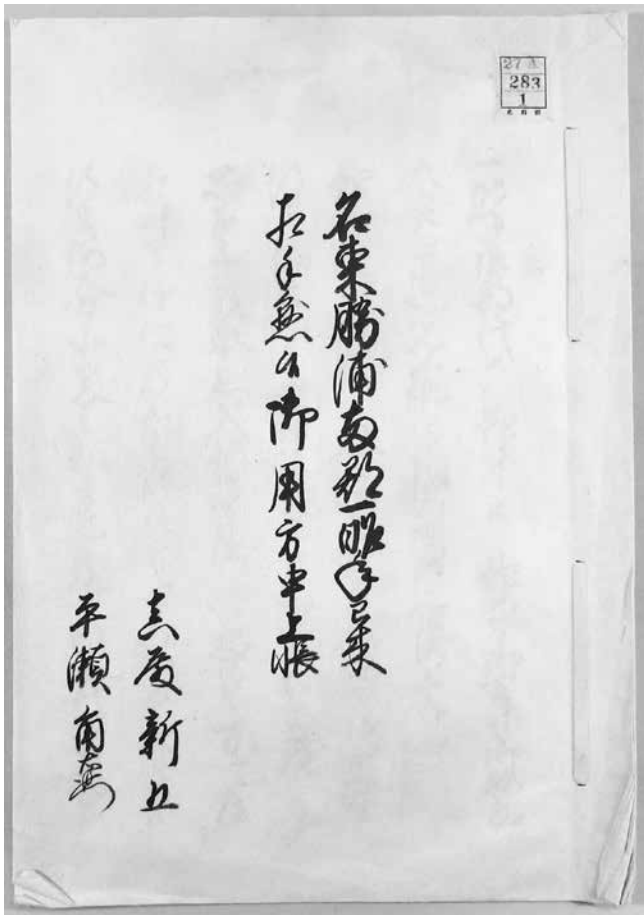 27A
283
1
名東勝浦両郡一昨年已来
相手懸候御用方申上帳
真度新五
平瀬角